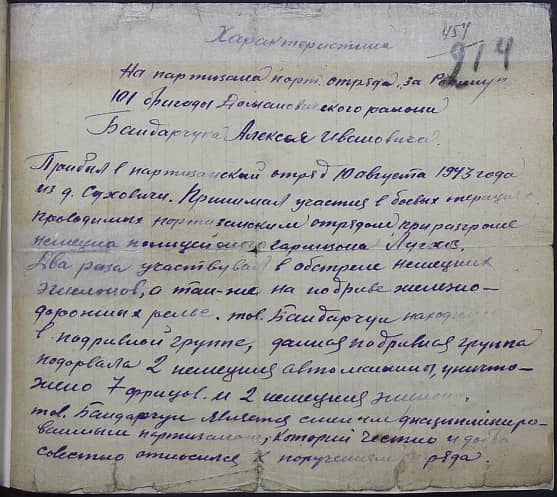 454
914
Характеристика
На партизана парт. отряда „за Родину"
101 бригады Домановичского района
Бандарчука Алексея Ивановича.
Прибыл в партизанский отряд 10 августа 1943 года
из д. Суховичи. Принимал участия в боевых операциях
проводимых партизанским отрядом при разгроме
немецко полицейского гарнизона
Два раза участвувал в обстреле немецких
эшелонов, а так-же на подриве железно-
дорожных рельс. тов. Бандарчук находился
в подривной группе, данная подривная группа
подорвала 2 немецкия автомашины, уничто-
жено 7 фрицов. и 2 немецкия эшелона.
тов. Бандарчук является смелым дисциплиниро-
ванным партизаном, который честно и добро
совестно относился к поручениям отряда.